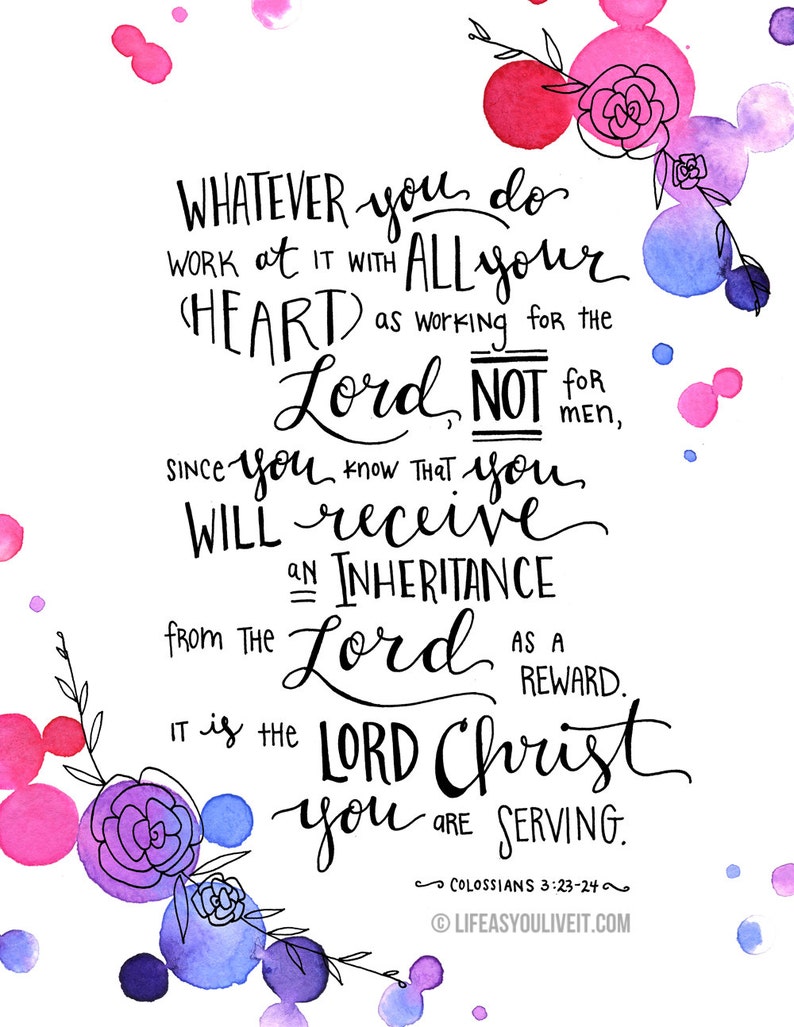 WHATEVER you do
WORK at IT WITH ALL your
(HEART) as WORKING FOR the
Lord, NOT for
MEN,
SINCE you KNOW THAT you
WILL receive
an INHERITANCE
FROM THE Lord AS A
REWARD.
IT is the LORD Christ
you are SERVING.
COLOSSIANS 3:23-24
© LIFEASYOULIVEIT.COM